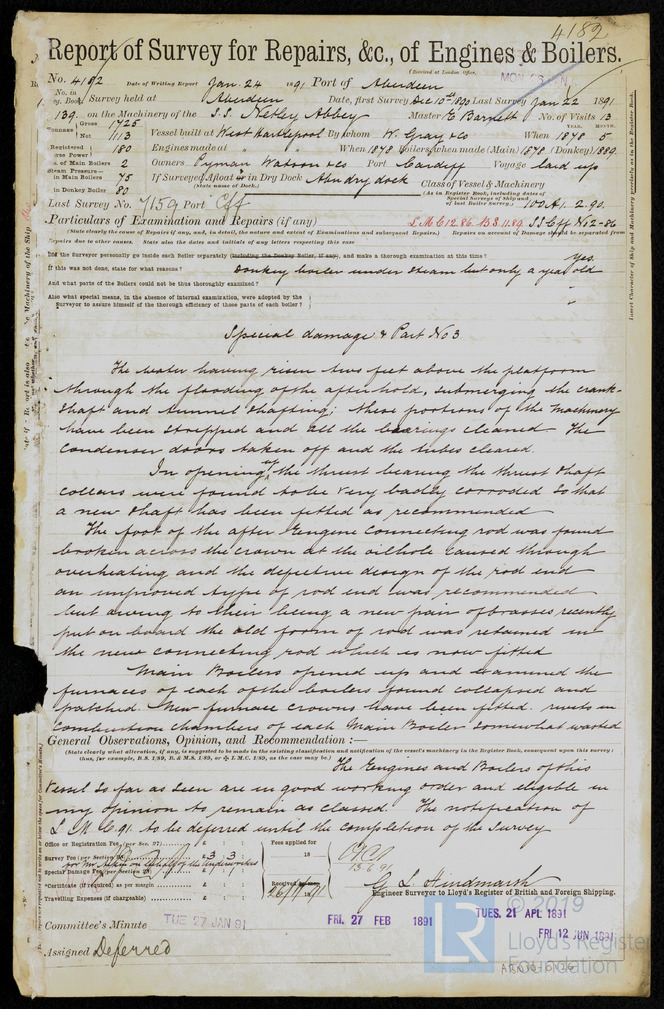 4182
Report of Survey for Repairs, &c., of Engines & Boilers.
(Received at London Office,
No. 4182 Date of Writing Report Jan. 24 1891 Port of Aberdeen MON 26 JAN
No. in
Survey held at Aberdeen Date, first Survey Dec 10th 1890 Last Survey Jan 22 1891
139 on the Machinery of the S.S. Netley Abbey Master E Barnett No. of Visits 13
Tonnage Gross 1725 Net 1113 Vessel built at West Hartlepool By whom W. Gray & Co When 1878 5
YEAR. MONTH.
Registered Horse Power 180 Engines made at " " When 1878 Boilers, when made (Main) 1878 (Donkey) 1889
No. of Main Boilers 2 Owners Pyman Watson & Co Port Cardiff Voyage laid up
Steam Pressure in Main Boilers 75 If Surveyed Afloat or in Dry Dock Abn dry dock
(State name of Dock.)
Class of Vessel & Machinery
(As in Register Book, including dates of Special Surveys of Ship and of last Boiler Survey.)
in Donkey Boiler 80 100A1. 2.90.
Last Survey No. 7159 Port Cff
L.M.C 12.86. B.S.11.89 S.S Cff No2-86
Particulars of Examination and Repairs (if any)
(State clearly the cause of Repairs if any, and, in detail, the nature and extent of Examinations and subsequent Repairs.) Repairs on account of Damage should be separated from
Repairs due to other causes. State also the dates and initials of any letters respecting this case
Did the Surveyor personally go inside each Boiler separately (including the Donkey Boiler, if any), and make a thorough examination at this time? yes.
If this was not done, state for what reasons? Donkey boiler under steam but only a year old
And what parts of the Boilers could not be thus thoroughly examined? "
Also what special means, in the absence of internal examination, were adopted by the
Surveyor to assure himself of the thorough efficiency of those parts of each boiler? "
Special damage & Part No 3
The water having risen two feet above the platform
through the flooding of the afterhold, submerging the crank-
shaft and tunnel shafting; these portions of the Machinery
have been stripped and all the bearings cleaned The
condenser doors taken off and the tubes cleared.
In opening up the thrust bearing the thrust shaft
collars were found to be very badly corroded so that
a new shaft has been fitted as recommended
The foot of the after Engine connecting rod was found
broken across the crown at the oilhole caused through
overheating and the defective design of the rod end
an improved type of rod end was recommended
but owing to their being a new pair of brasses recently
put on board the old form of rod was retained in
the new connecting rod which is now fitted
Main Boilers opened up and examined the
furnaces of each of the boilers found collapsed and
patched. New furnace crowns have been fitted. rivets in
combustion chambers of each Main Boiler somewhat wasted
General Observations, Opinion, and Recommendation :—
(State clearly what alteration, if any, is suggested to be made in the existing classification and notification of the vessel's machinery in the Register Book, consequent upon this survey;
thus, for example, B.S. 1/89, B. & M.S. 1/89, or L.M.C. 1/89, as the case may be.)
The Engines and Boilers of this
vessel so far as seen are in good working order and eligible in
my opinion to remain as classed. The notification of
L.M.C. 91. to be deferred until the completion of the Survey
Office or Registration Fee, (per Sec. 27) £ : : Fees applied for
Survey Fee (per Section 28) £ 3 : 3 : 18
for Mr. on behalf of the Underwriters
Special Damage Fee (per Section 28) £ : :
*Certificate (if required) as per margin £ : : Received
Travelling Expenses (if chargeable) £ : :
G. L. Hindmarsh
Engineer Surveyor to Lloyd's Register of British and Foreign Shipping.
Committee's Minute TUE 27 JAN 91 FRI. 27 FEB 1891 TUES. 21 APL 1891
FRI. 12 JUN 1891
Assigned Deferred
© 2019
LR
Lloyd's Register
Foundation
Insert Character of Ship and Machinery precisely as in the Register Book.